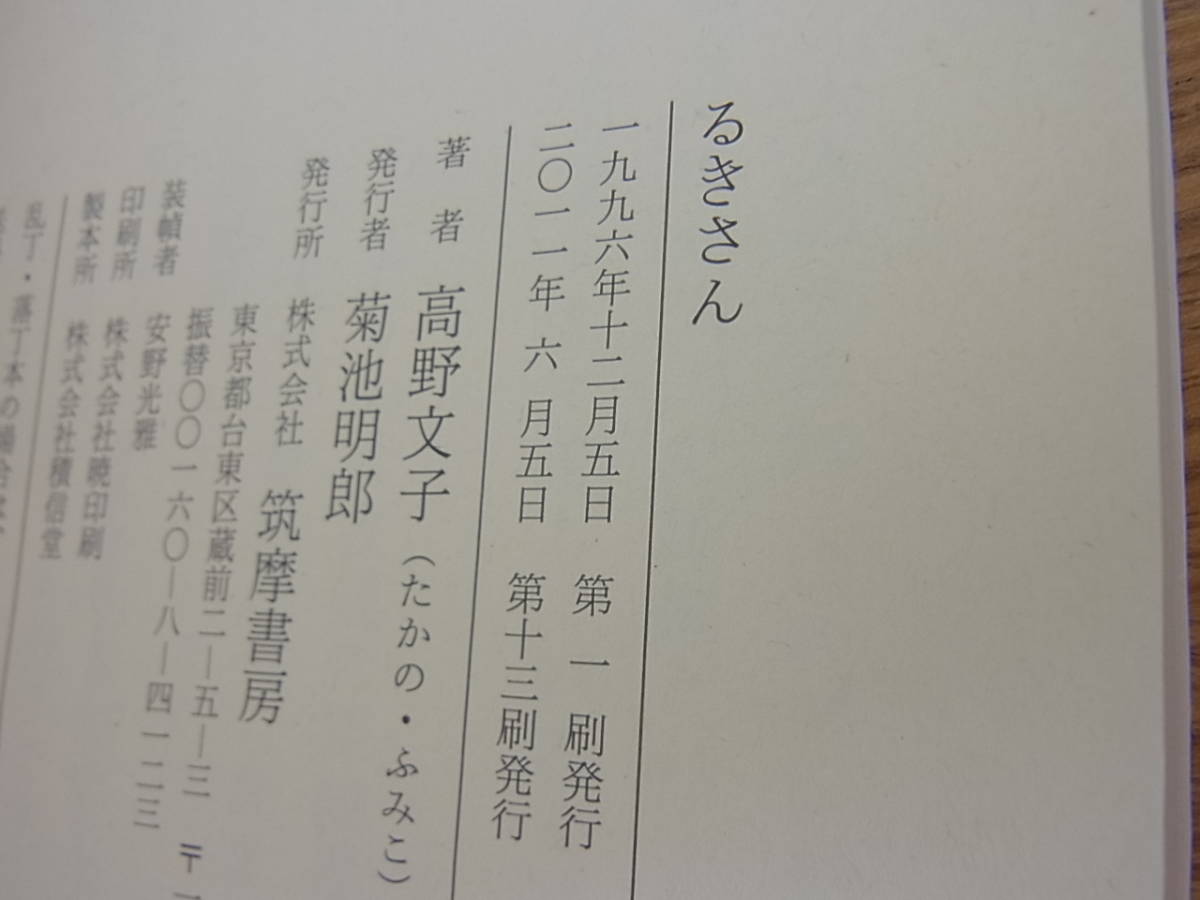 るきさん
一九九六年十二月五日 第一刷発行
二〇一一年六月五日 第十三刷発行
著者 高野文子（たかの・ふみこ）
発行者 菊池明郎
発行所 株式会社 筑摩書房
東京都台東区蔵前二―五―三 〒一
振替〇〇一六〇―八―四一二三
装幀者 安野光雅
印刷所 株式会社暁印刷
製本所 株式会社積信堂
乱丁・落丁本の場合は、